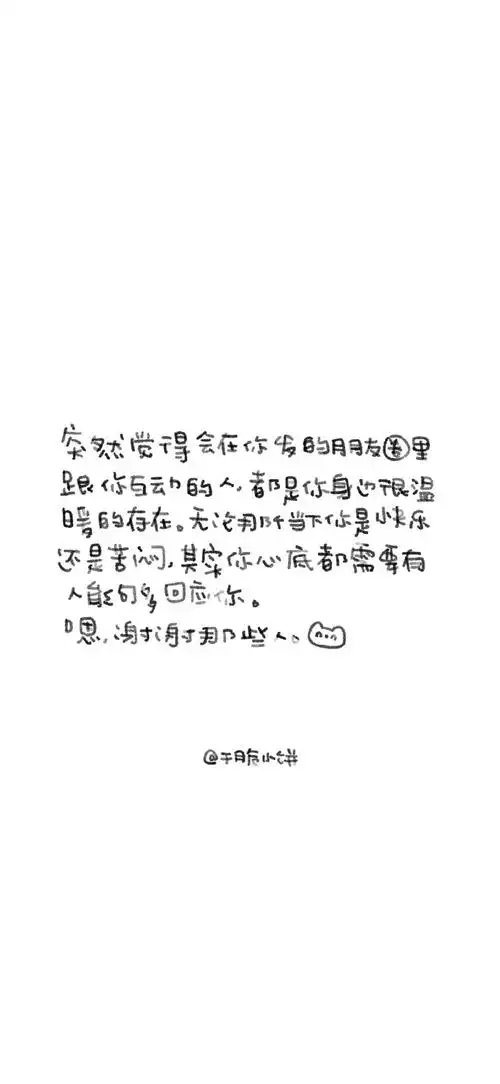 突然觉得会在你发的朋友圈里
跟你互动的人,都是你身边很温
暖的存在。无论那个当下你是快乐
还是苦闷,其实你心底都需要有
人能够回应你。
嗯,谢谢那些人。
@干脆小饼